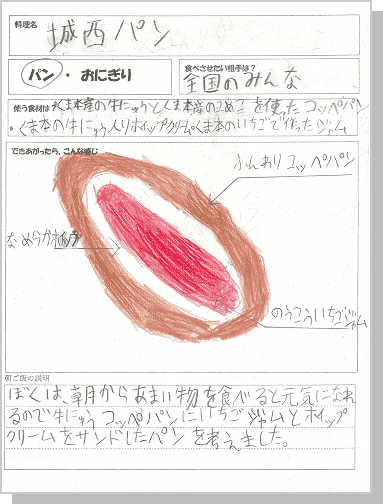 料理名
城西パン
パン・おにぎり
食べさせたい相手は?
全国のみんな
使う食材は
・くま本産の牛にゅうとくま本産のこめこを使ったコッペパン
・くま本の牛にゅう入りホイップクリームくま本のいちごで作ったジャム
できあがったら、こんな感じ
ふんわりコッペパン
なめらかホイップ
のうこういちごジャム
朝ご飯の説明
ぼくは、朝からあまい物を食べると元気になれ
るので牛にゅうコッペパンにいちごジャムとホイップ
クリームをサンドしたパンを考えました。